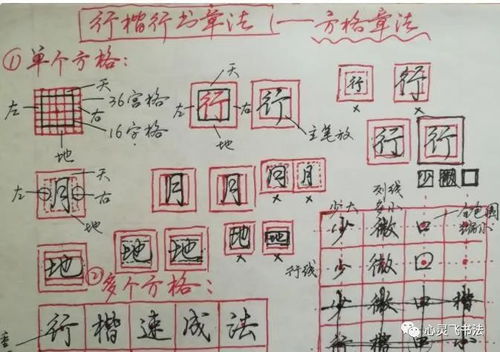 行楷行书章法——方格章法
①单个方格：
天
左
右
36宫格
16字格
地
天
左 行 右 行
地
主笔放
行 行
行 行
少 微 口
天
左 月 右
地
月 月 月 月
地 地 地 地 地
行线
少大
列线
多小
少 微 口
少 微 口
少 微 口 楷
行 楷 中 小
②多个方格：
行 楷 速 成 法
心灵飞书法